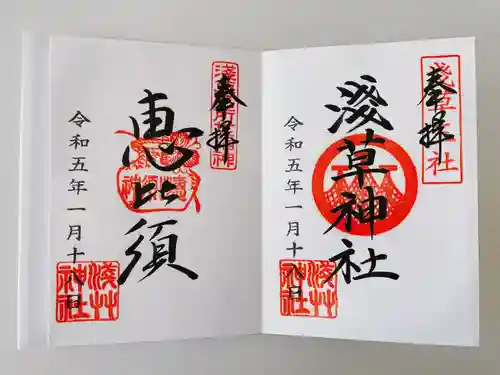 奉拝
浅草神社
令和五年一月十八日
浅草神社
浅草神社
奉拝
恵比須
令和五年一月十八日
浅草神社